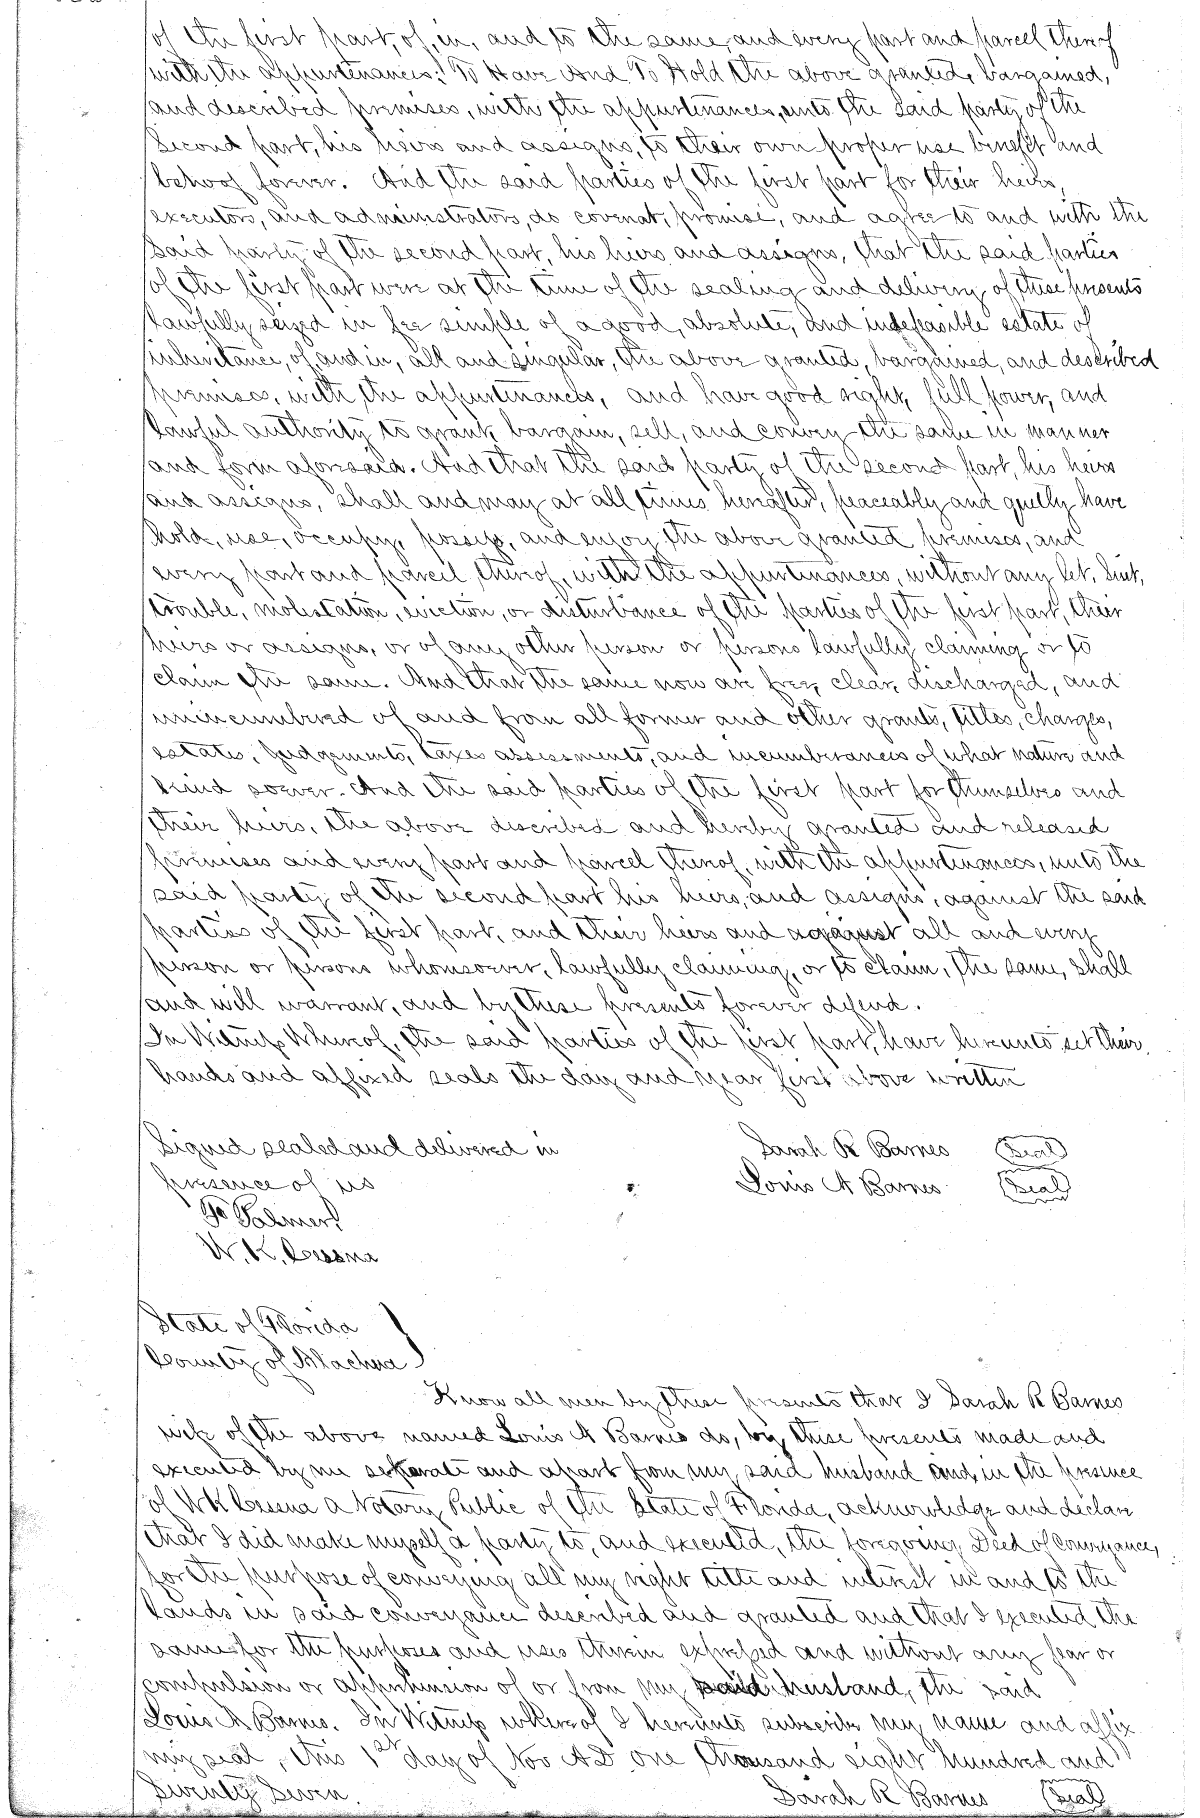 of the first part, of, in, and to the same, and every part and parcel thereof
with the appurtenances: To Have And To Hold the above granted, bargained,
and described premises, with the appurtenances, unto the said party of the
Second part, his heirs and assigns, to their own proper use benefit and
behoof forever. And the said parties of the first part for their heirs,
executors, and administrators, do covenat, promise, and agree to and with the
Said party of the second part, his heirs and assigns, that the said parties
of the first part were at the time of the sealing and delivery of these presents
lawfully seized in fee simple of a good, absolute, and indefeasible estate of
inheritance, of, and in, all and singular, the above granted, bargained, and described
premises, with the appurtenances, and have good right, full power, and
lawful authority to grant, bargain, sell, and convey the same in manner
and form aforesaid. And that the said party of the second part, his heirs
and assigns, shall and may at all times hereafter, peaceably and quetly have
hold, use, occupy, possess, and enjoy the above granted premises, and
every part and parcel thereof, with the appurtenances, without any let, Suit,
trouble, molestation, eviction, or disturbance of the parties of the first part, their
heirs or assigns, or of any other person or persons lawfully claiming or to
claim the same. And that the same now are free, clear, discharged, and
unincumbered of and from all former and other grants, titles, charges,
estates, judgements, taxes assessments, and incumbrances of what nature and
kind soever. And the said parties of the first part for themselves and
their heirs, the above described and hereby granted and released
premises and every part and parcel thereof, with the appurtenances, unto the
said party of the second part his heirs, and assigns, against the said
parties of the first part, and their heirs and against all and every
person or persons whomsoever, lawfully claiming, or to claim, the same, shall
and will warrant, and by these presents forever defend.
In Witness Whereof, the said parties of the first part, have hereunto set their
hands and affixed seals the day and year first above written
Signed sealed and delivered in Sarah R Barnes (Seal)
presence of us Louis A Barnes (Seal)
Palmer
W. K. Cessna
State of Florida }
County of Alachua }
Know all men by these presents that I Sarah R Barnes
wife of the above named Louis A Barnes do, by these presents made and
executed by me seperate and apart from my said husband and, in the presence
of W K Cessna a Notary Public of the State of Florida, acknowledge and declare
that I did make myself a party to, and executed, the foregoing Deed of Conveyance,
for the purpose of conveying all my right title and interest in and to the
lands in said conveyance described and granted and that I executed the
same for the purposes and uses therein expressed and without any fear or
compulsion or apprehension of or from my said husband, the said
Louis A Barnes. In Witness whereof I hereunto subscribe my name and affix
my seal, this 1st day of Nov A D one thousand eight hundred and
Seventy Seven. Sarah R Barnes (Seal)